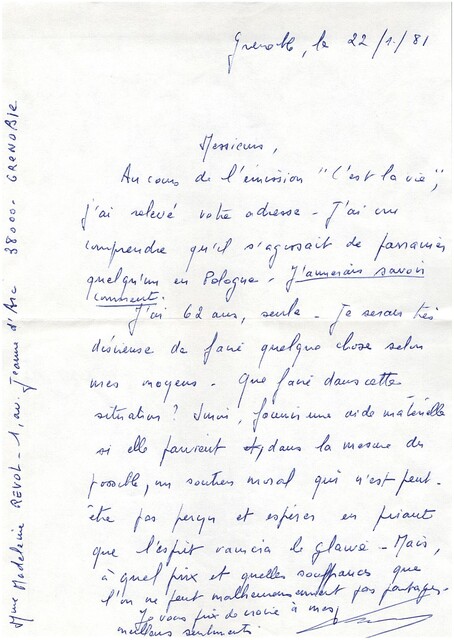 Grenoble, le 22/1/81
Messieurs,
Au cours de l'émission "C'est la vie",
j'ai relevé votre adresse - J'ai cru
comprendre qu'il s'agissait de parrainer
quelqu'un en Pologne. J'aimerais savoir
comment.
J'ai 62 ans, seule - Je serais très
désireuse de faire quelque chose selon
mes moyens - Que faire dans cette
situation ? fournir une aide matérielle
si elle parvient et, dans la mesure du
possible, un soutien moral qui n'est peut-
être pas perçu et espérer en priant
que l'esprit vaincra le glaive - Mais,
à quel prix et quelles souffrances que
l'on ne peut malheureusement pas partager -
Je vous prie de croire à mes
meilleurs sentiments
Mme Madeleine REVOL - 1, av. Jeanne d'Arc 38000 - GRENOBLE